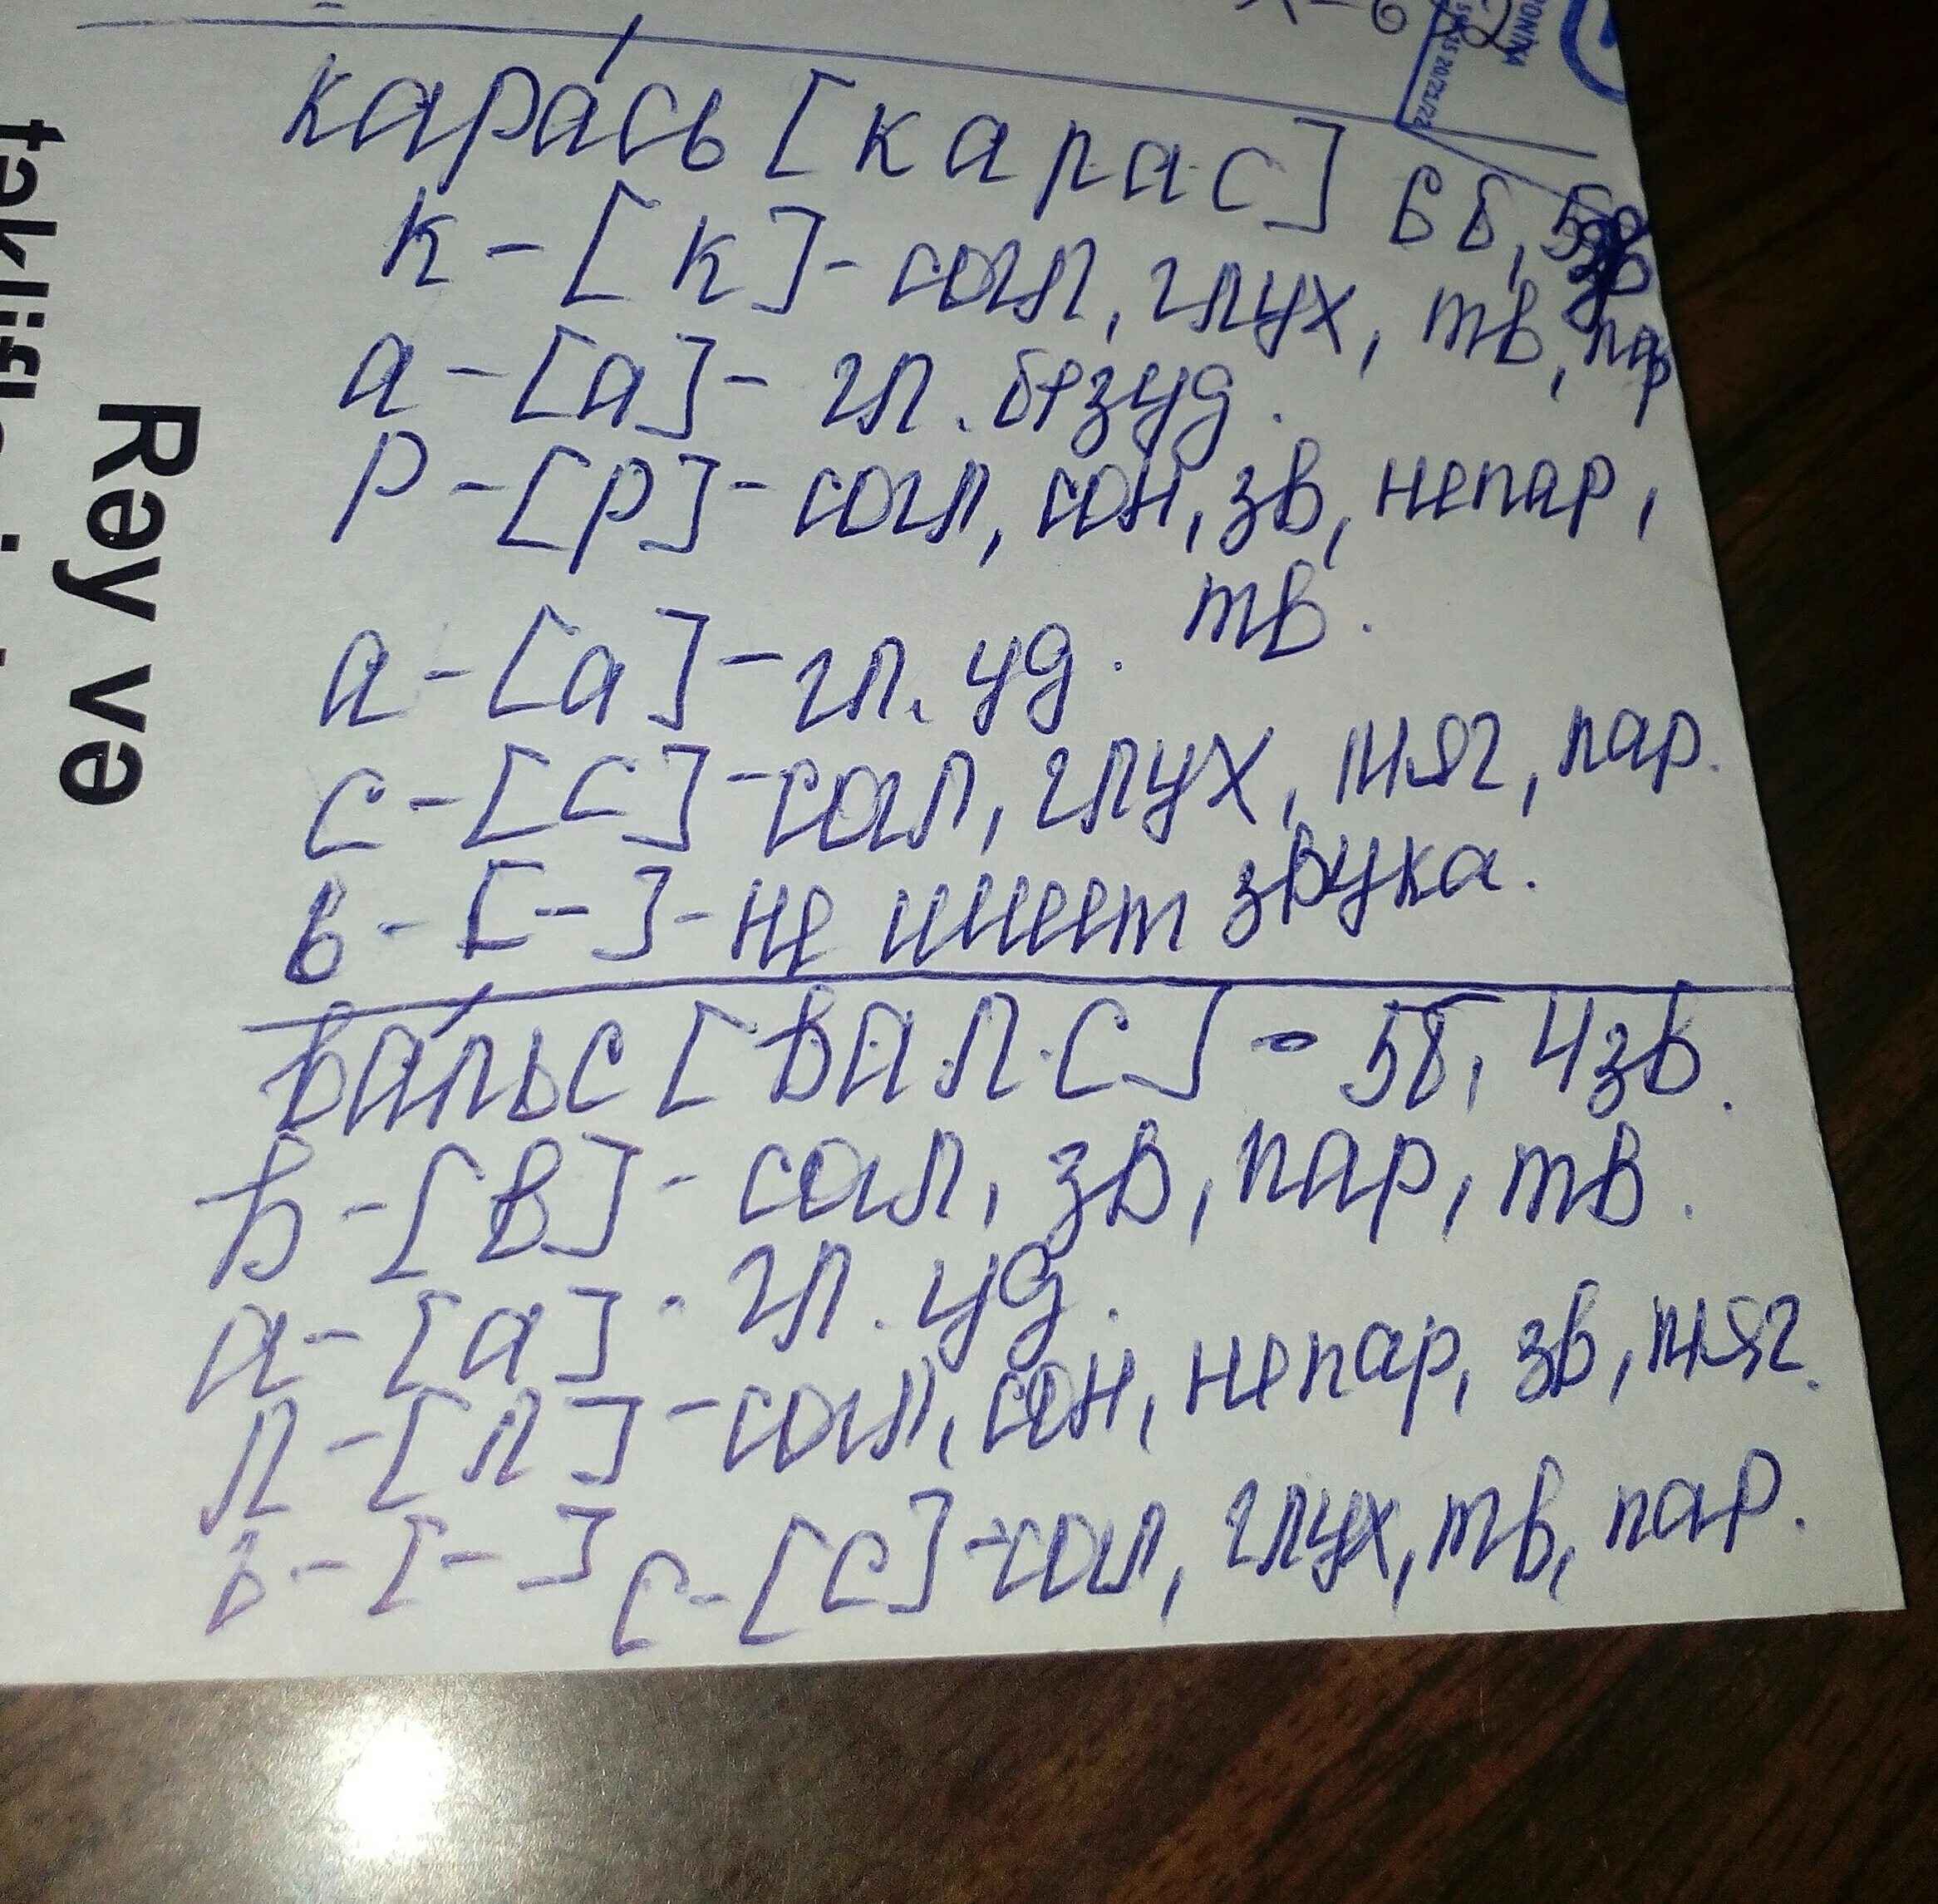 карась [карас] 6б, 5зв
к - [к] - согл, глух, тв, пар
а - [а] - гл. безуд.
р - [р] - согл, сон, зв, непар,
тв.
а - [а] - гл. уд.
с - [с] - согл, глух, мяг, пар.
ь - [-] - не имеет звука.
вальс [валс] - 5б, 4зв.
в - [в] - согл, зв, пар, тв.
а - [а] - гл. уд.
л - [л] - согл, сон, непар, зв, мяг.
ь - [-] с - [с] - согл, глух, тв, пар.
Rəy və